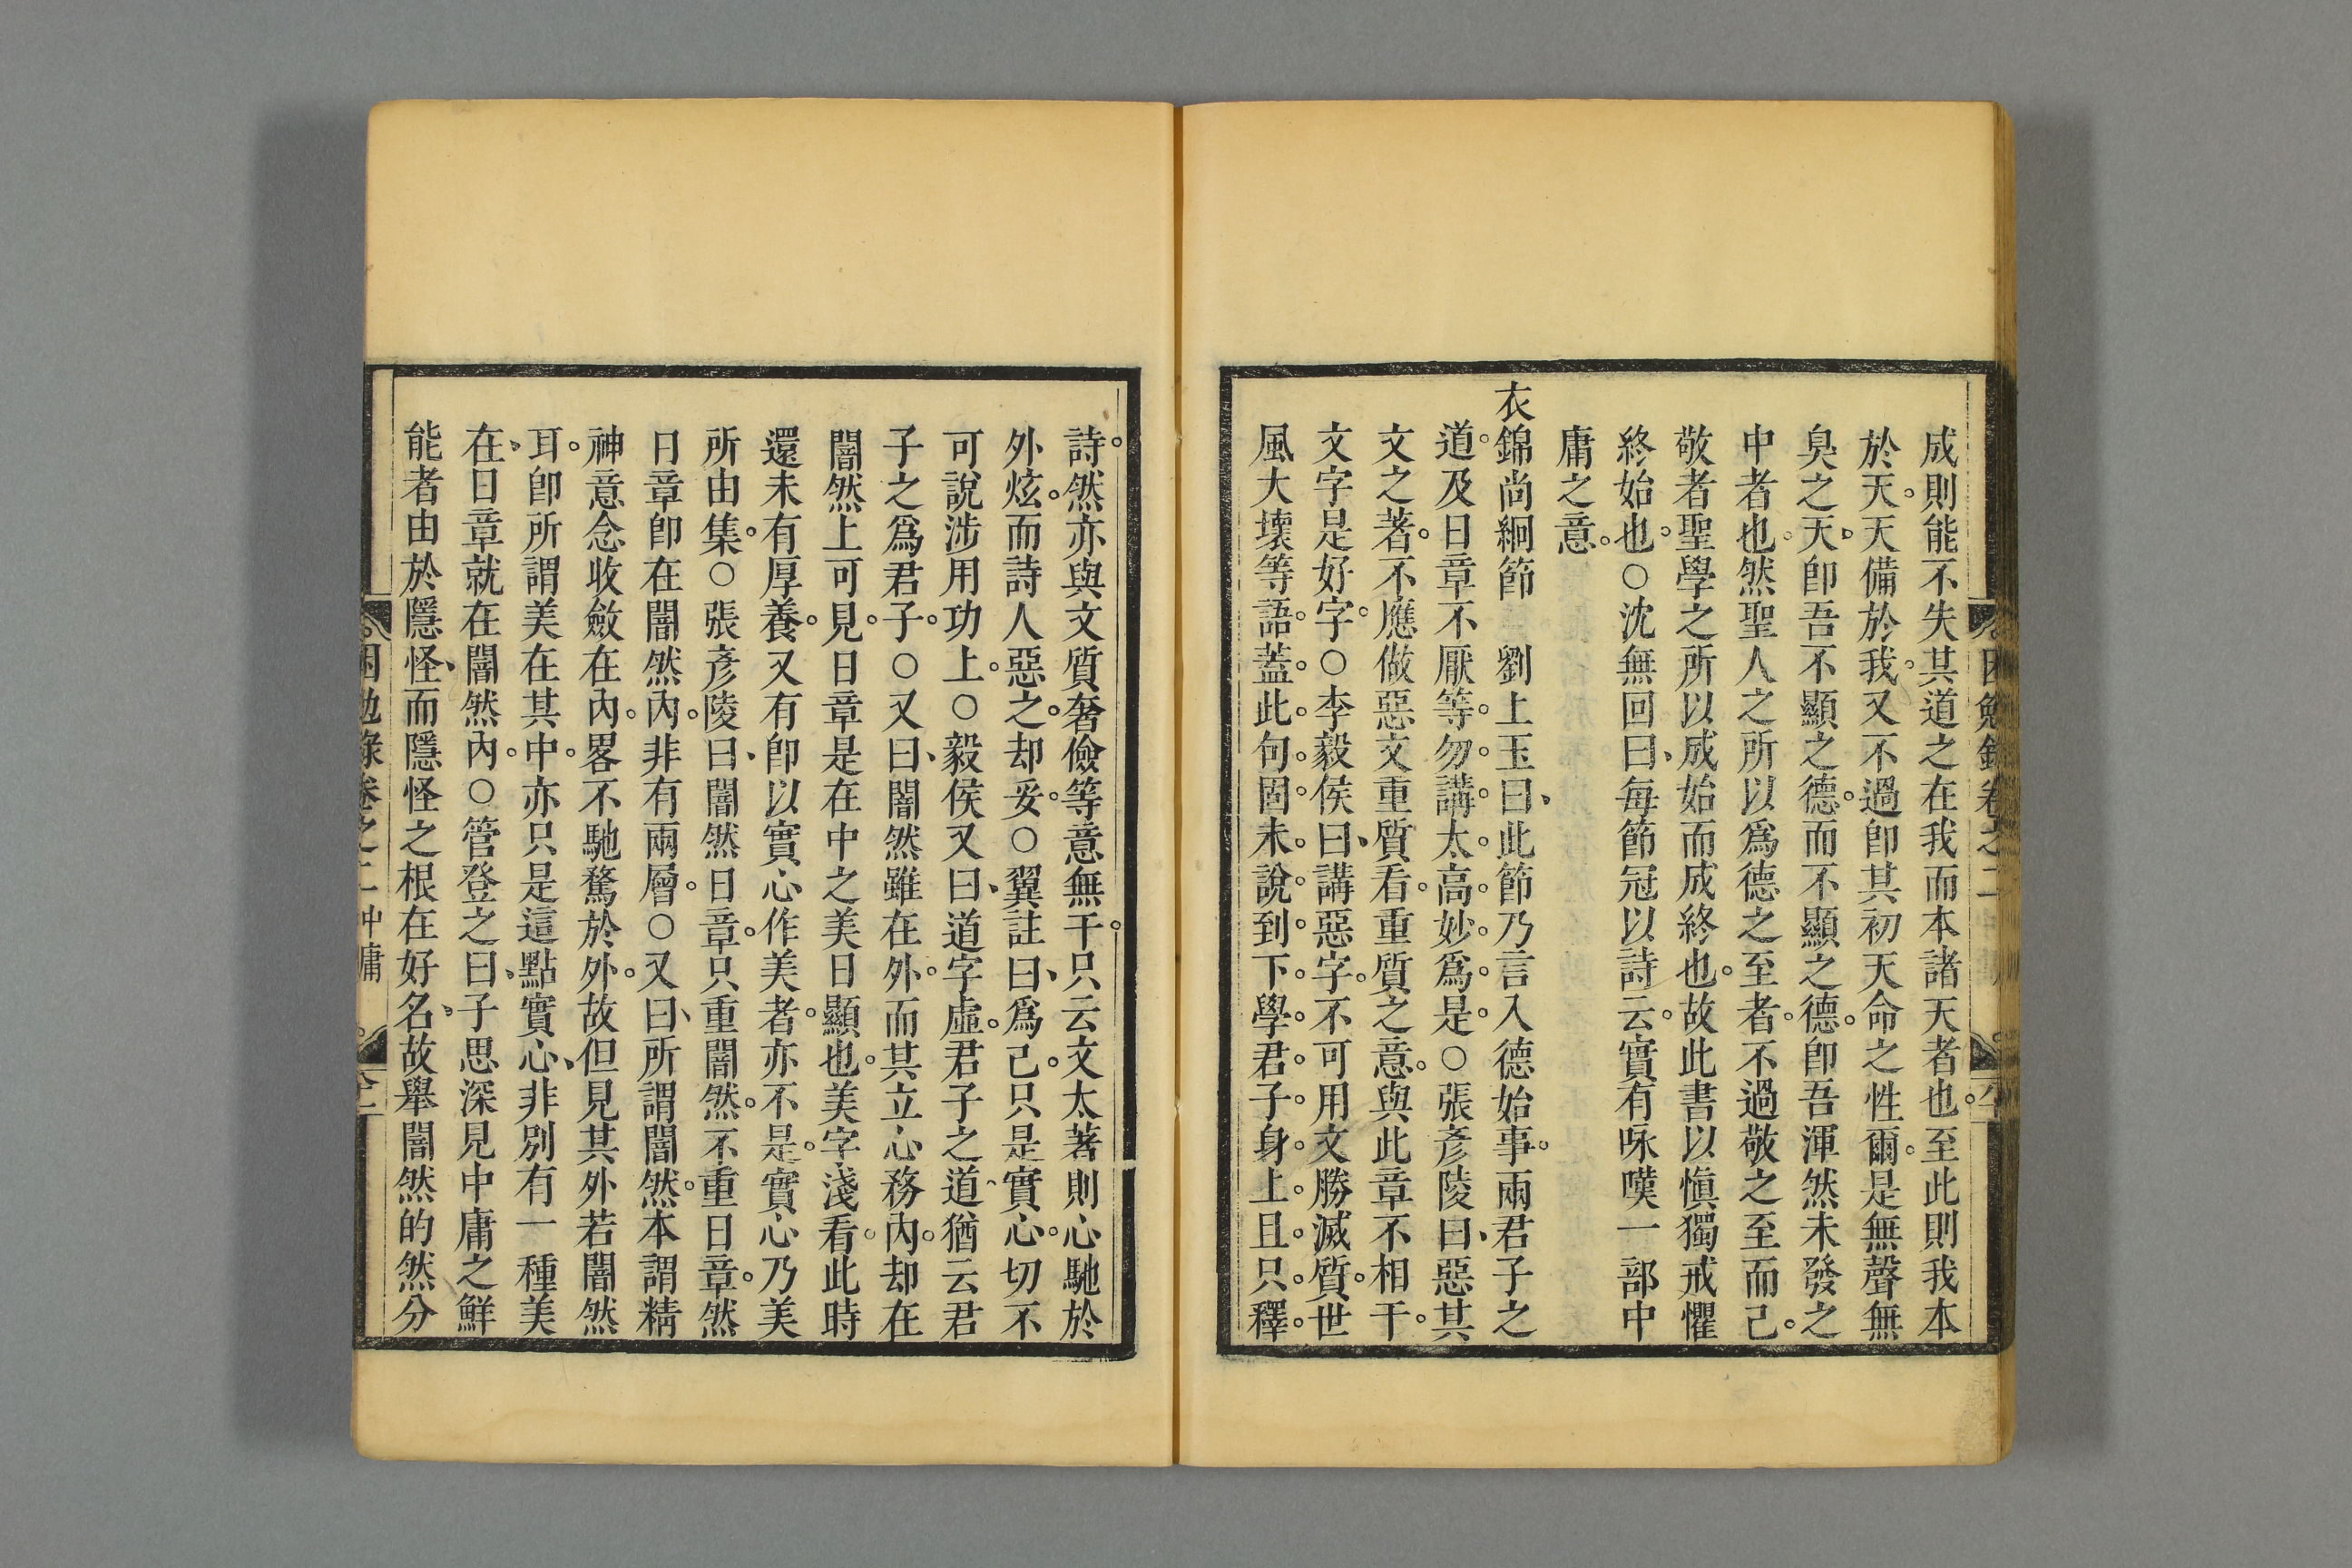 成則能不失其道之在我而本諸天者也。至此則我本
於天。天備於我。又不過卽其初天命之性爾。是無聲無
臭之天。卽吾不顯之德。而不顯之德。卽吾渾然未發之
中者也。然聖人之所以爲德之至者。不過敬之至而已。
敬者聖學之所以成始而成終也。故此書以愼獨戒懼
終始也。○沈無回曰、每節冠以詩云。實有咏嘆一部中
庸之意。
衣錦尚絅節　劉上玉曰、此節乃言入德始事。兩君子之
道。及日章不厭等。勿。講。太。高。妙。爲。是。○張彥陵曰、惡其
文之著。不應做惡文重質看。重質之意。與此章不相干。
文字是好字。○李毅侯曰、講惡字。不可用文勝滅質。世
風大壞等語。蓋。此。句。固。未。說。到。下。學。君。子。身。上。且。只。釋。
詩。然亦與文質奢儉等意無干。只云文太著則心馳於
外炫。而詩人惡之。却妥。○翼註曰、爲己。只是實心。切不
可說涉用功上。○毅侯又曰、道字虛。君子之道、猶云君
子之爲君子。○又曰、闇然雖在外。而其立心務內。却在
闇然上可見。日章是在中之美日顯也。美字淺看。此時
還未有厚養。又有卽以實心作美者。亦不是。實心乃美
所由集。○張彥陵曰、闇然日章。只重闇然。不重日章。然
日章卽在闇然內。非有兩層。○又曰、所謂闇然。本謂精
神意念收斂在內。畧不馳騖於外。故但見其外若闇然
耳。卽所謂美在其中。亦只是這點實心、非別有一種美
在、日章就在闇然內。○管登之曰、子思深見中庸之鮮
能者由於隱怪、而隱怪之根在好名、故舉闇然的然分
困勉錄卷之二 中庸